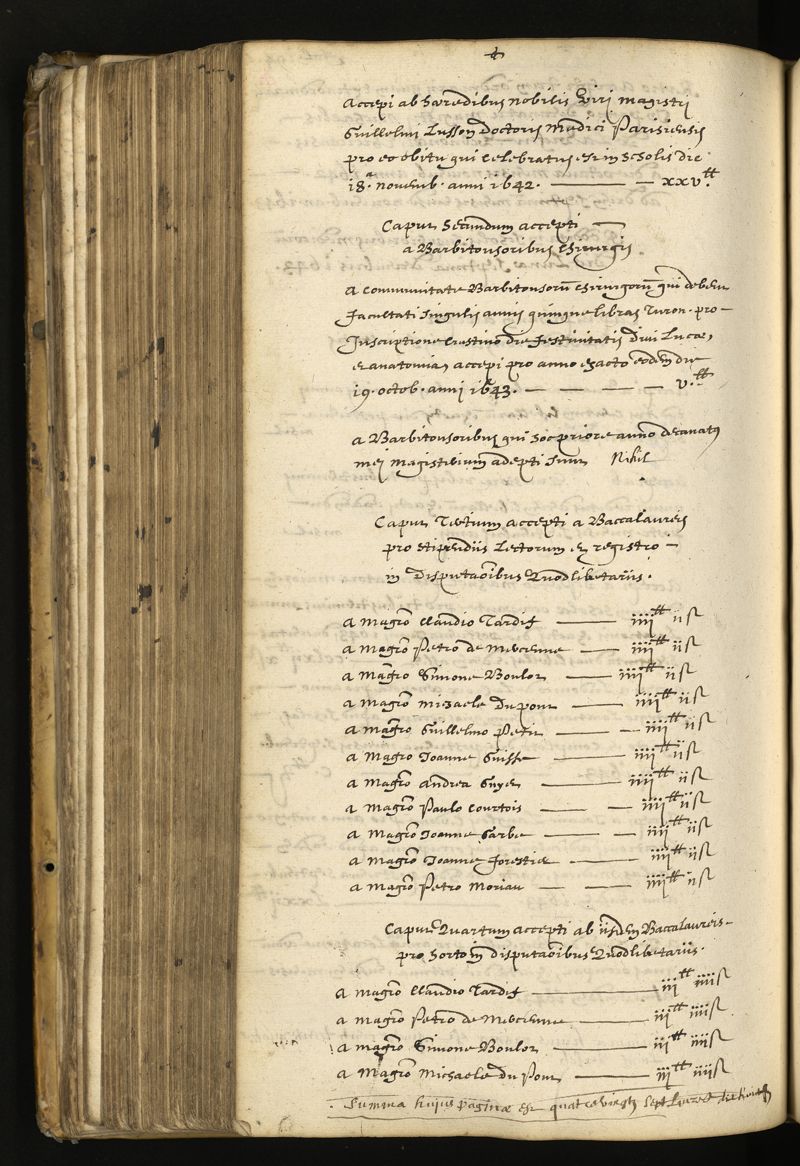 +
Accepi ab hæredibus nobilis viri magistri
Guillelmi Lusson doctoris medici Parisiensis
pro eo obitu qui celebratus est in scholis die
18.ª novemb. anni 1642. — — xxv.ᵗᵗ
Caput Secundum accepti —
a Barbitonsoribus chirurgis
A communitate Barbitonsorū chirurgorū qui debent
facultati singulis annis quinque libras Turon. pro —
Inscriptione crastino die festivitatis divi Lucæ,
et anatomia, accepi pro anno exacto eodem die
19. octob. anni 1643. — — — — v.ᵗᵗ
A Barbitonsoribus qui hoc priore anno decanatus
mei magisterium adepti sunt Nihil
Caput Tertium accepti a Baccalaureis
pro stipendiis Lectorum et registro —
in Disputaōibus Quodlibetariis.
A magrō Claudio Tardif — iiiiᵗᵗ iiſ
A magrō Petro de Mercenne — — iiiiᵗᵗ iiſ
A magrō Simone Boulot — iiiiᵗᵗ iiſ
A magrō Michaele du pont — iiiiᵗᵗ iiſ
A magrō Guillelmo Petit — — iiiiᵗᵗ iiſ
A Magrō Joanne Guisse — iiiiᵗᵗ iiſ
A magrō Andrea Guyet — iiiiᵗᵗ iiſ
A magrō Paulo Courtois — — iiiiᵗᵗ iiſ
A magrō Joanne Garbe — — iiiiᵗᵗ iiſ
A magrō Joanne forestier — iiiiᵗᵗ iiſ
A magrō Petro Moriau — — iiiiᵗᵗ iiſ
Caput Quartum accepti ab iisdem Baccalaureis —
pro horto in disputaōibus Quodlibetariis.
A magrō Claudio Tardif — iiiᵗᵗ iiiiſ
A magrō Petro de Mercenne — iiiᵗᵗ iiiiſ
A magrō Simone Boulot — iiiᵗᵗ iiiiſ
A Magrō Michaele du Pont — iiiᵗᵗ iiiiſ
Summa hujus paginæ est quatre vingts sept livres dix huict ſ